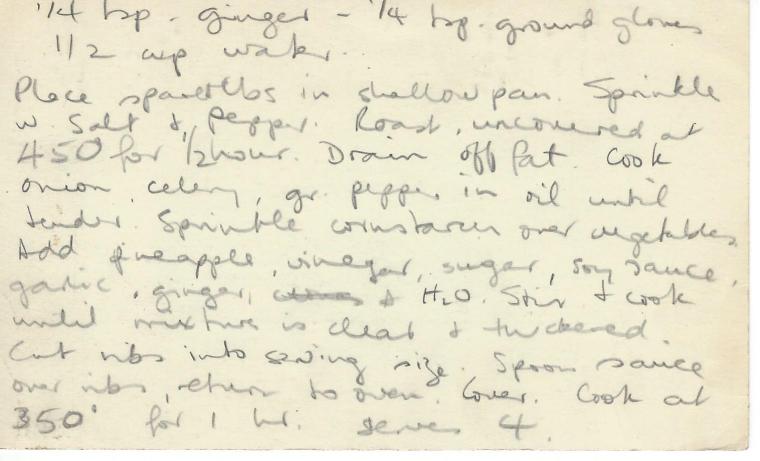 1/4 tsp. ginger - 1/4 tsp. ground gloves
1/2 cup water.
Place spareribs in shallow pan. Sprinkle
w salt & pepper. Roast, uncovered at
450° for 1/2 hour. Drain off fat. Cook
onion, celery, gr. pepper in oil until
tender. Sprinkle cornstarch over vegetables.
Add pineapple, vinegar, sugar, soy sauce,
garlic, ginger, & H2O. Stir & cook
until mixture is clear & thickened.
Cut ribs into serving size. Spoon sauce
over ribs, return to oven. Cover. Cook at
350° for 1 hr. serves 4.